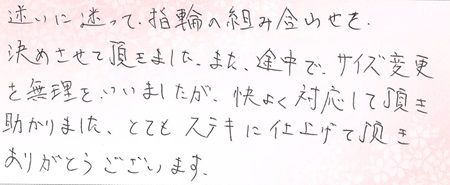 迷いに迷って、指輪の組み合わせを、
決めさせて頂きました。また、途中で、サイズ変更
を無理を、いいましたが、快よく対応して頂き
助かりました、とても ステキに仕上げて頂き
ありがとうございます。